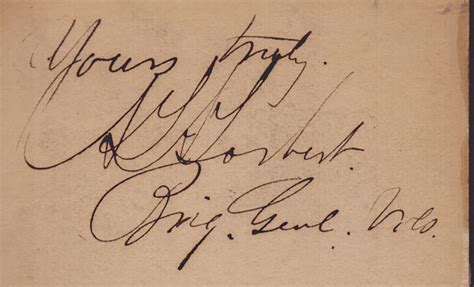 Yours truly.
A T A Torbert.
Brig. Genl. Vols.